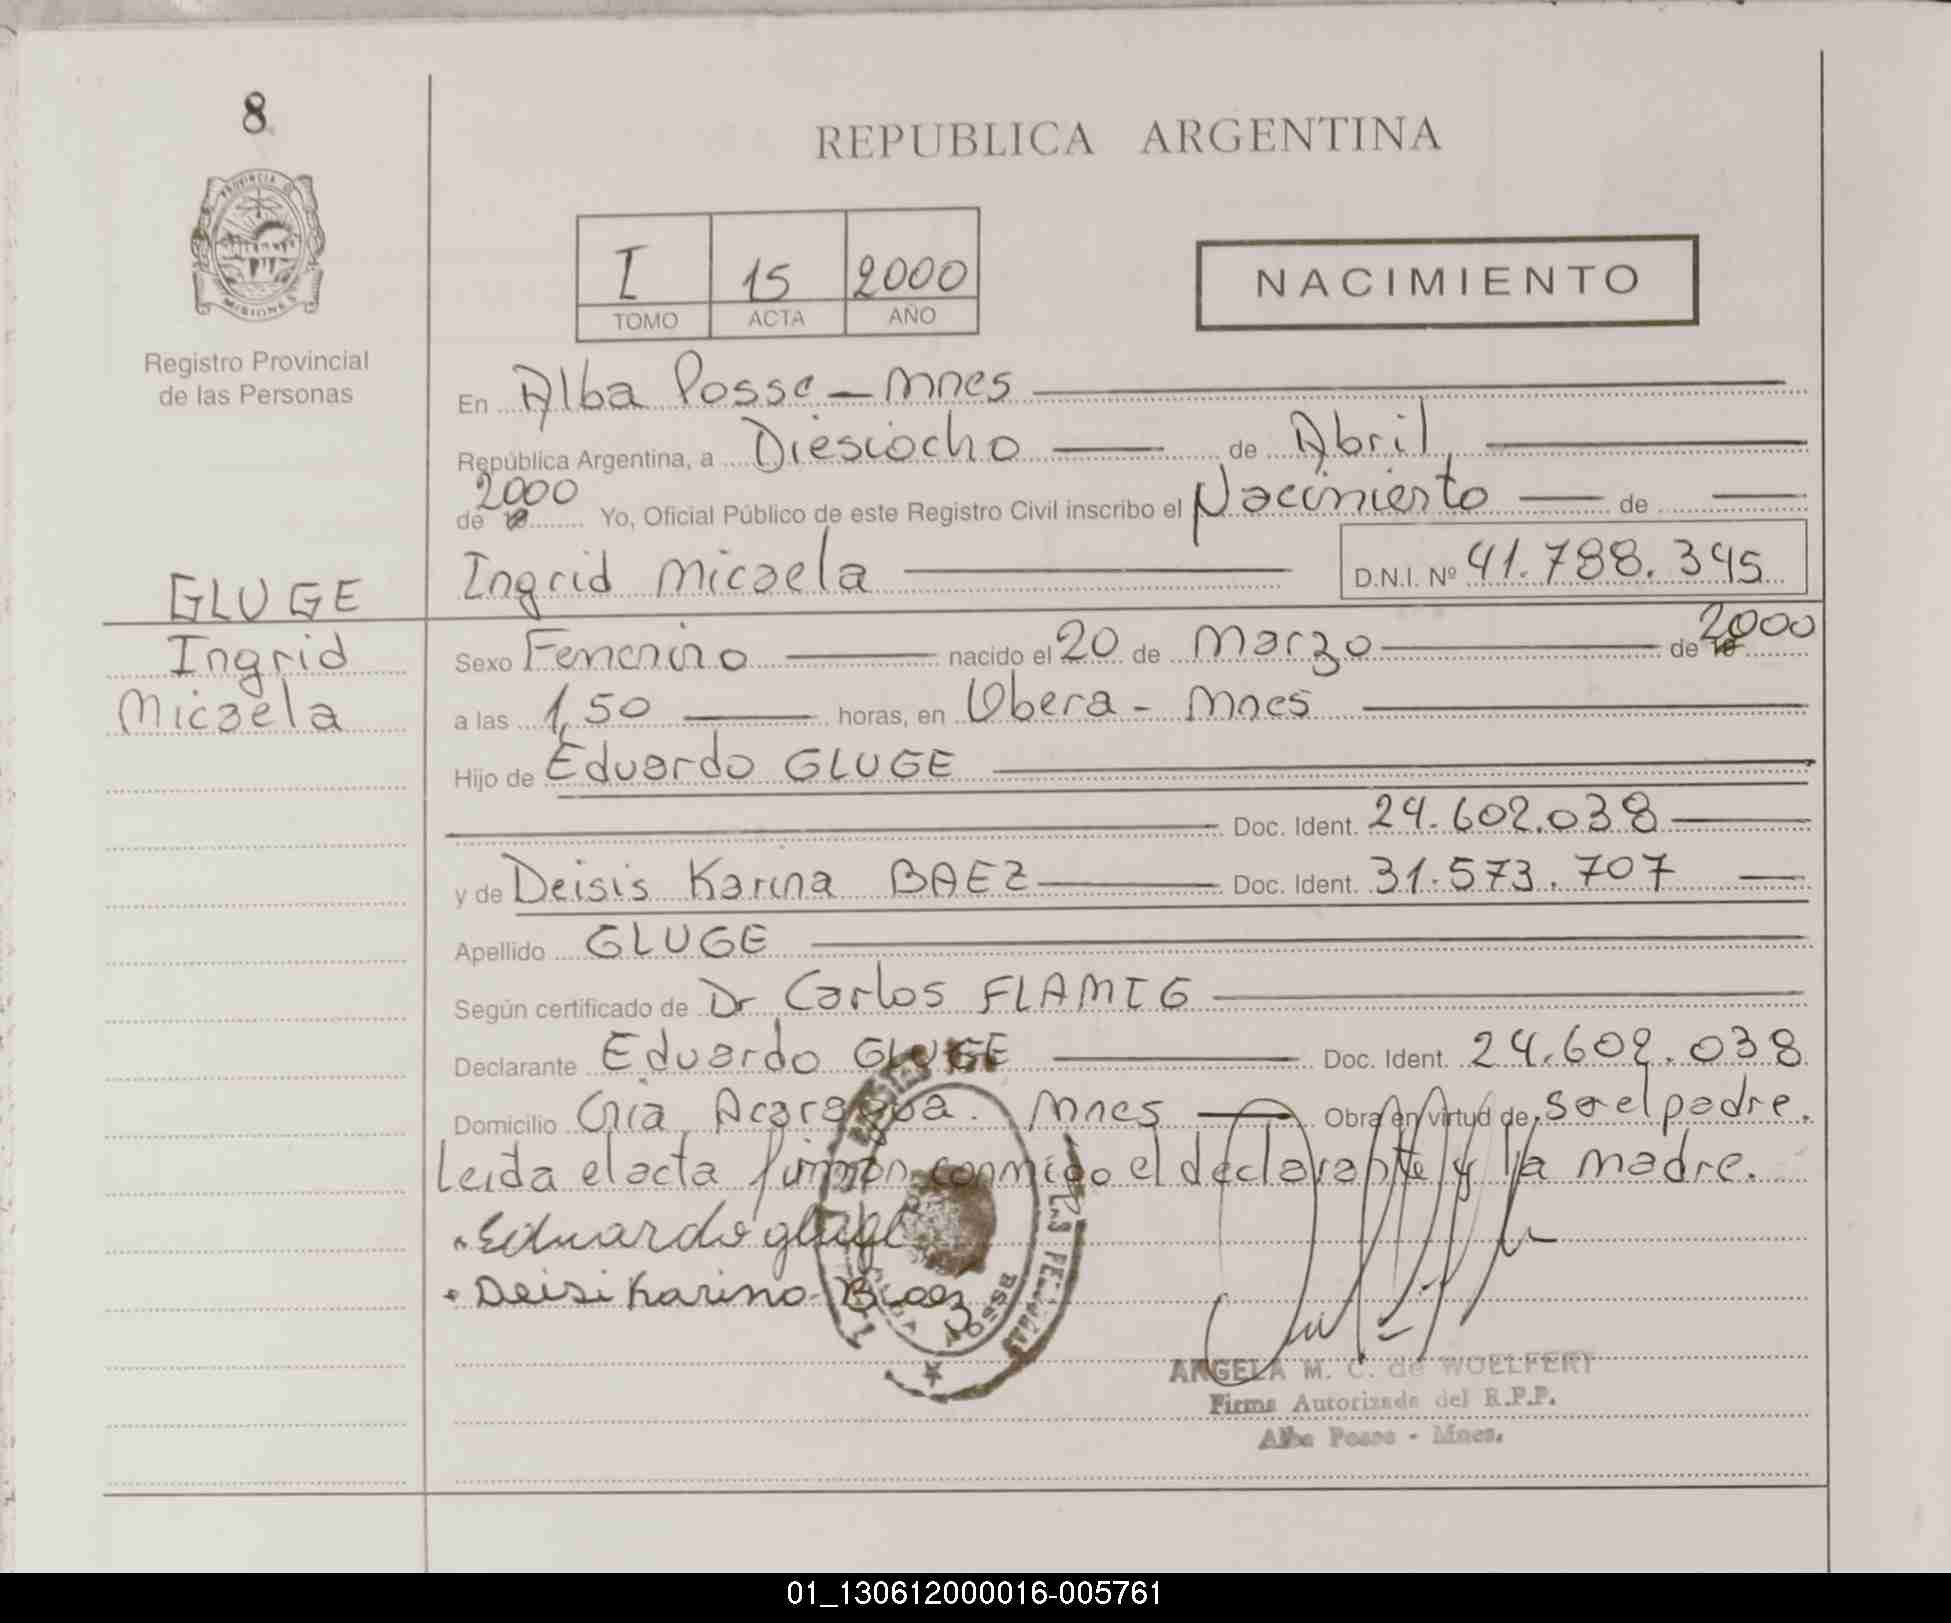 8
PROVINCIA DE
MISIONES
Registro Provincial
de las Personas
GLUGE
Ingrid
Micaela
REPUBLICA ARGENTINA
I 15 2000
TOMO ACTA AÑO
NACIMIENTO
En Alba Posse - Mnes
República Argentina, a Diesciocho de Abril,
de 2000 Yo, Oficial Público de este Registro Civil inscribo el Nacimiento de
Ingrid Micaela D.N.I. Nº 41.788.345
Sexo Femenino nacido el 20 de Marzo de 2000
a las 1,50 horas, en Obera - Mnes
Hijo de Eduardo GLUGE
Doc. Ident. 24.602.038
y de Deisis Karina BAEZ Doc. Ident. 31.573.707
Apellido GLUGE
Según certificado de Dr Carlos FLAMIG
Declarante Eduardo GLUGE Doc. Ident. 24.602.038
Domicilio Cnia Acaragua. Mnes Obra en virtud de ser el padre.
Leida el acta firman conmigo el declarante y la madre.
Eduardo gluge
Deisi Karina Baez
ANGELA M. C. de WOELFERT
Firma Autorizada del R.P.P.
Alba Posse - Mnes.
01_130612000016-005761